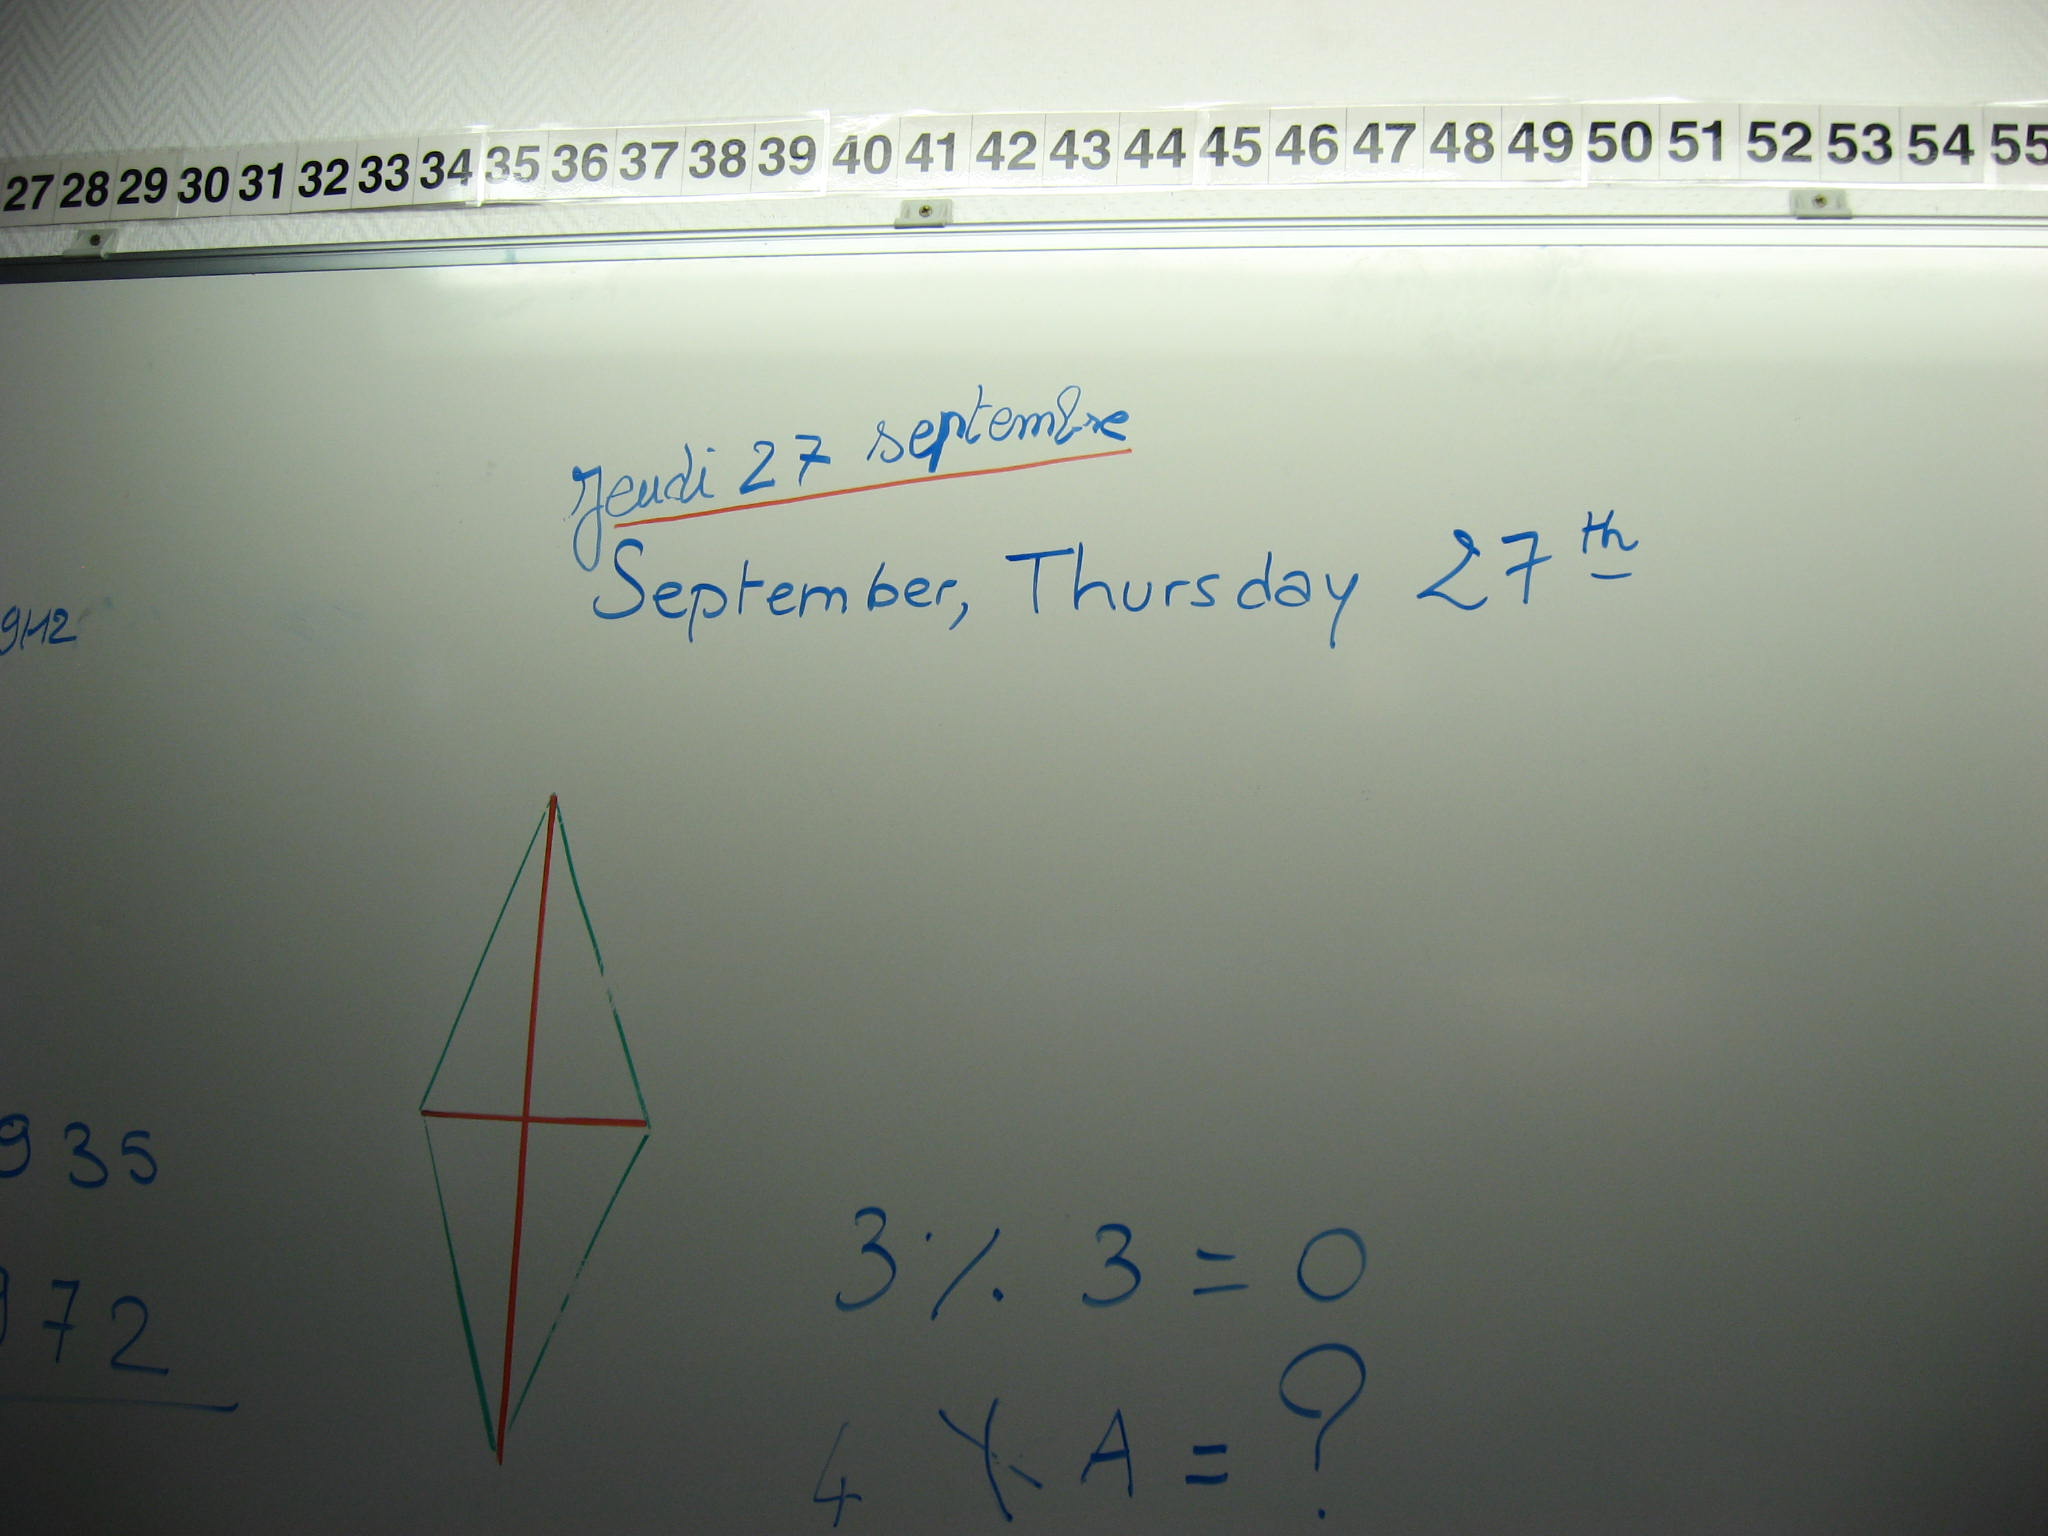 27 28 29 30 31 32 33 34 35 36 37 38 39 40 41 42 43 44 45 46 47 48 49 50 51 52 53 54 55
Jeudi 27 septembre
September, Thursday 27th
9H12
935
3 % 3 = 0
972
4 X A = ?